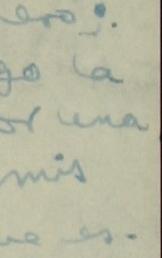 ero;.
go la
or una
mis
ue es-